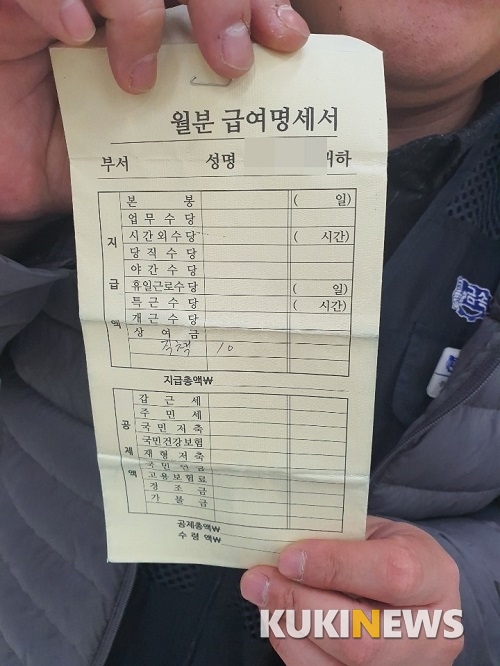 월분 급여명세서
부서 성명 귀하
지급액
본 봉 ( 일)
업 무 수 당
시 간 외 수 당 ( 시간)
당 직 수 당
야 간 수 당
휴일근로수당 ( 일)
특 근 수 당 ( 시간)
개 근 수 당
상 여 금
직책 10
지급총액₩
공제액
갑 근 세
주 민 세
국 민 저 축
국민건강보험
재 형 저 축
국 민 연 금
고 용 보 험 료
경 조 금
가 불 금
공제총액₩
수 령 액₩
KUKINEWS